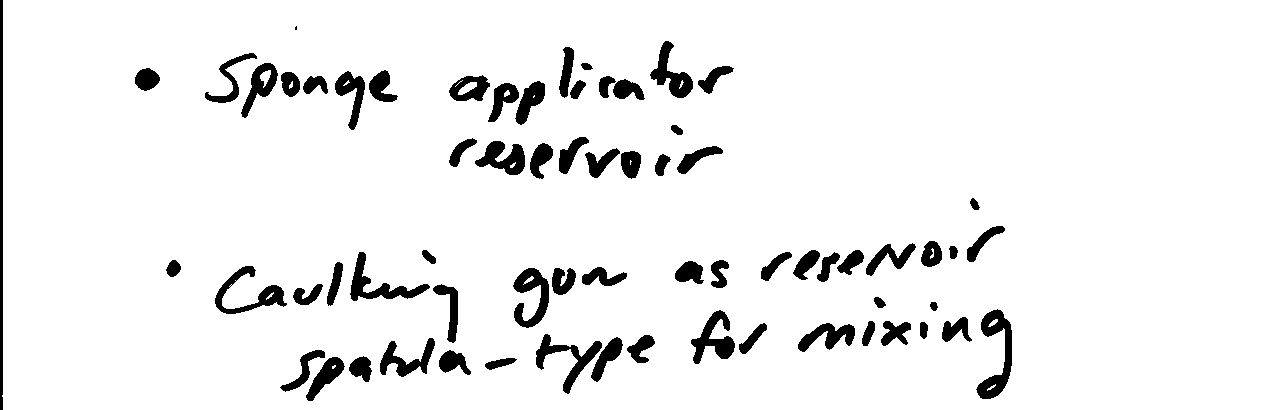 • Sponge applicator
reservoir
• Caulking gun as reservoir
spatula-type for mixing